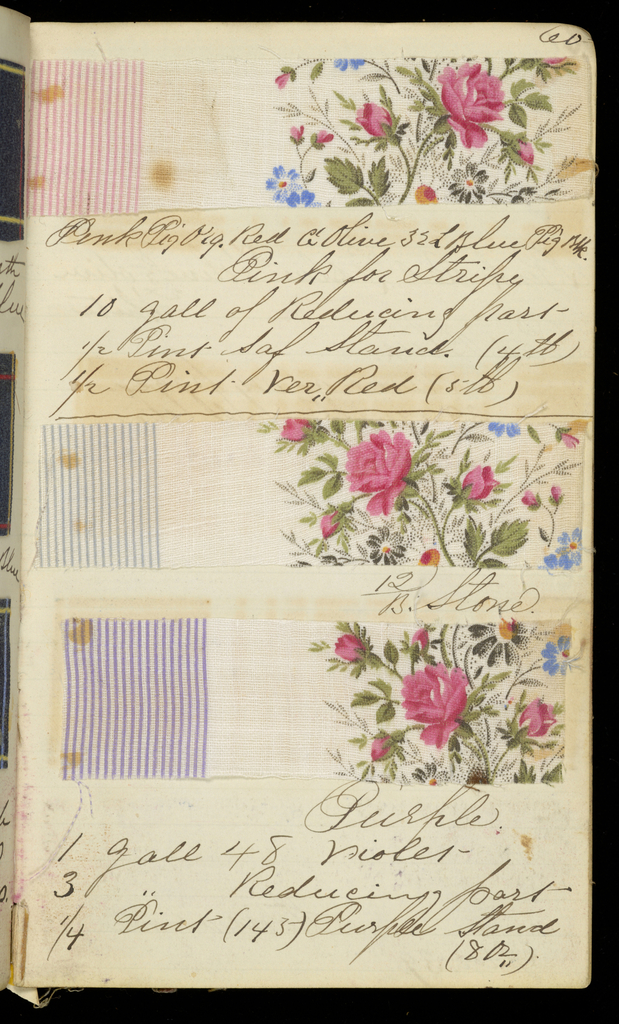 60
Pink Pig Orig. Red C. Olive 32 L Blue Pig Blk.
Pink for Stripe
10 gall of Reducing part
1/2 Pint Saf Stand. (4th)
1/2 Pint Ver,, Red (5th)
12/B. Stone.
Purple.
1 gall 48 Violet
3 ,, Reducing part
1/4 Pint (143) Purple Stand
(8 Oz,,).
Blue